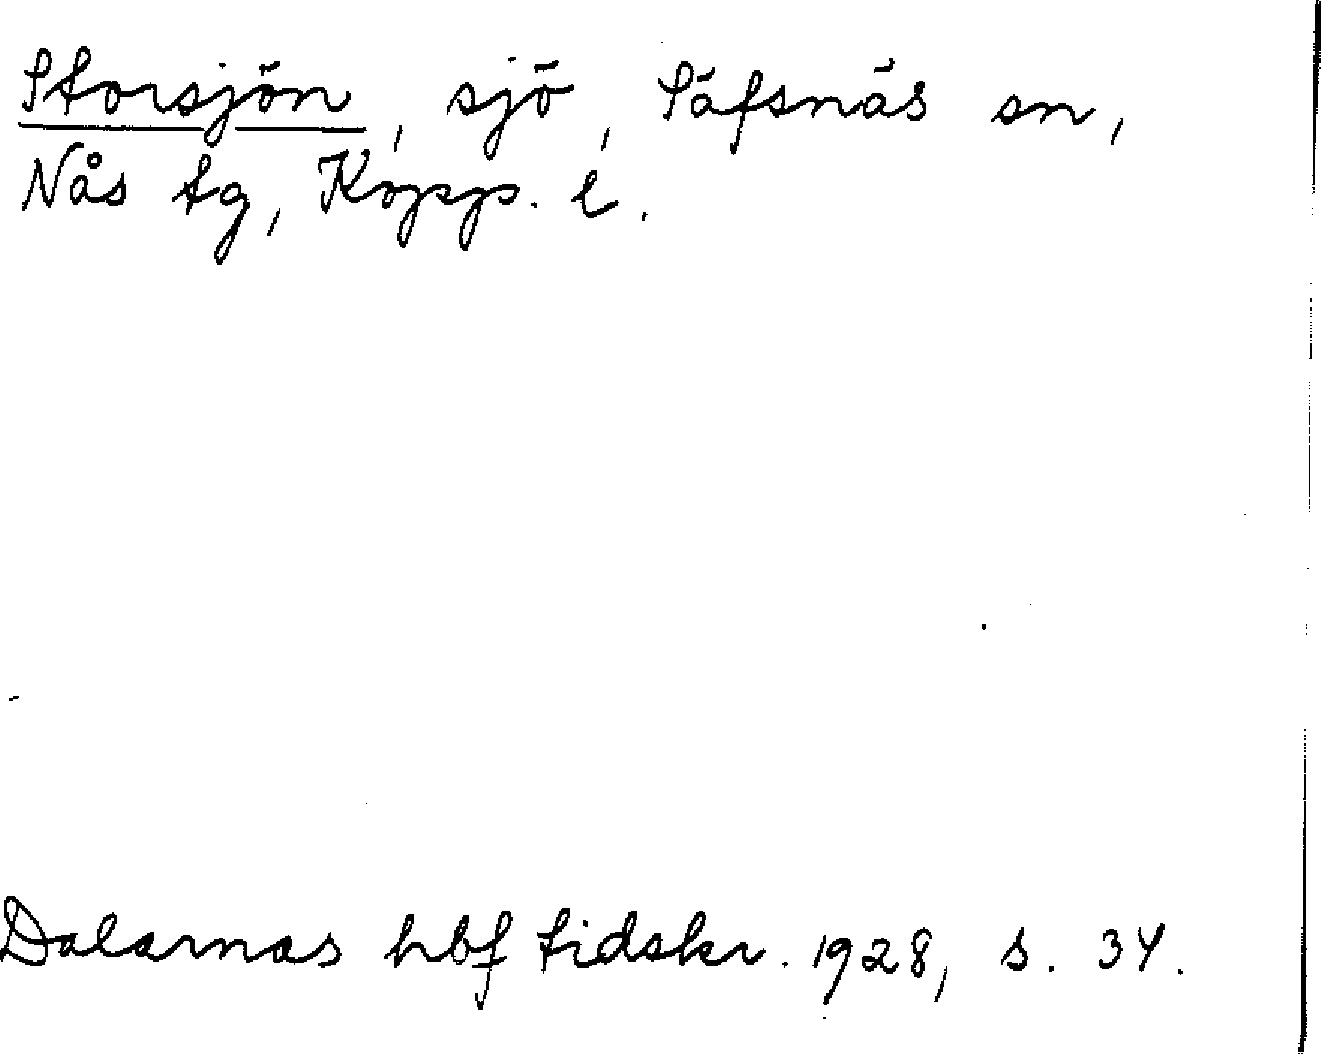 Storsjön, sjö, Säfsnäs sn,
Nås tg, Kopp. l.
Dalarnas hbf tidskr. 1928, s. 34.